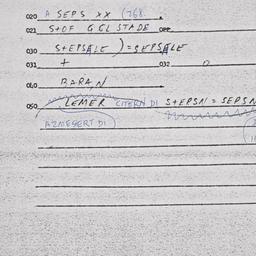 020 A SEPS XX (768
021 S+OF GGLSTADE OPP.
030 S+EPSALE ) = SEPSALE
031 + 032
040 BARAN
050 LEMER CITERN DI S+EPSN = SEPSN
AZMESERT DI